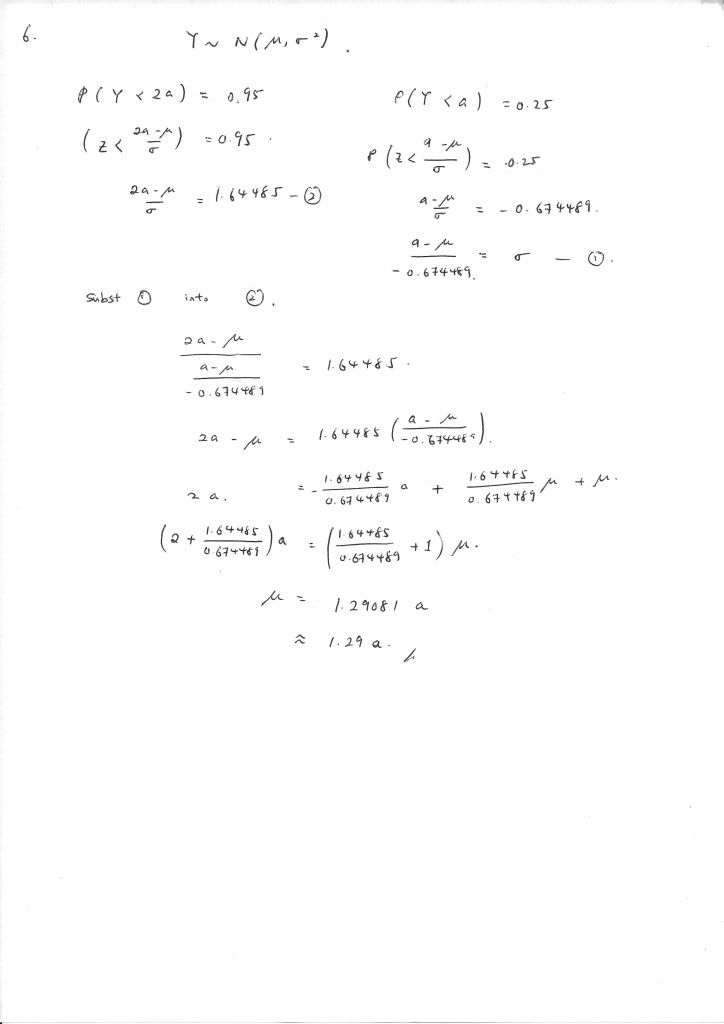 6.
Y ~ N(μ, σ²).
P(Y < 2a) = 0.95
(z < (2a-μ)/σ) = 0.95.
(2a-μ)/σ = 1.64485 - ②
P(Y < a) = 0.25
P(z < (a-μ)/σ) = 0.25
(a-μ)/σ = -0.674489.
(a-μ)/-0.674489. = σ - ①.
Subst ① into ②.
(2a-μ)/((a-μ)/-0.674489) = 1.64485.
2a - μ = 1.64485 ((a-μ)/-0.674489).
2a. = - 1.64485/0.674489 a + 1.64485/0.674489 μ + μ.
(2 + 1.64485/0.674489) a = (1.64485/0.674489 + 1) μ.
μ = 1.29081 a
≈ 1.29 a.